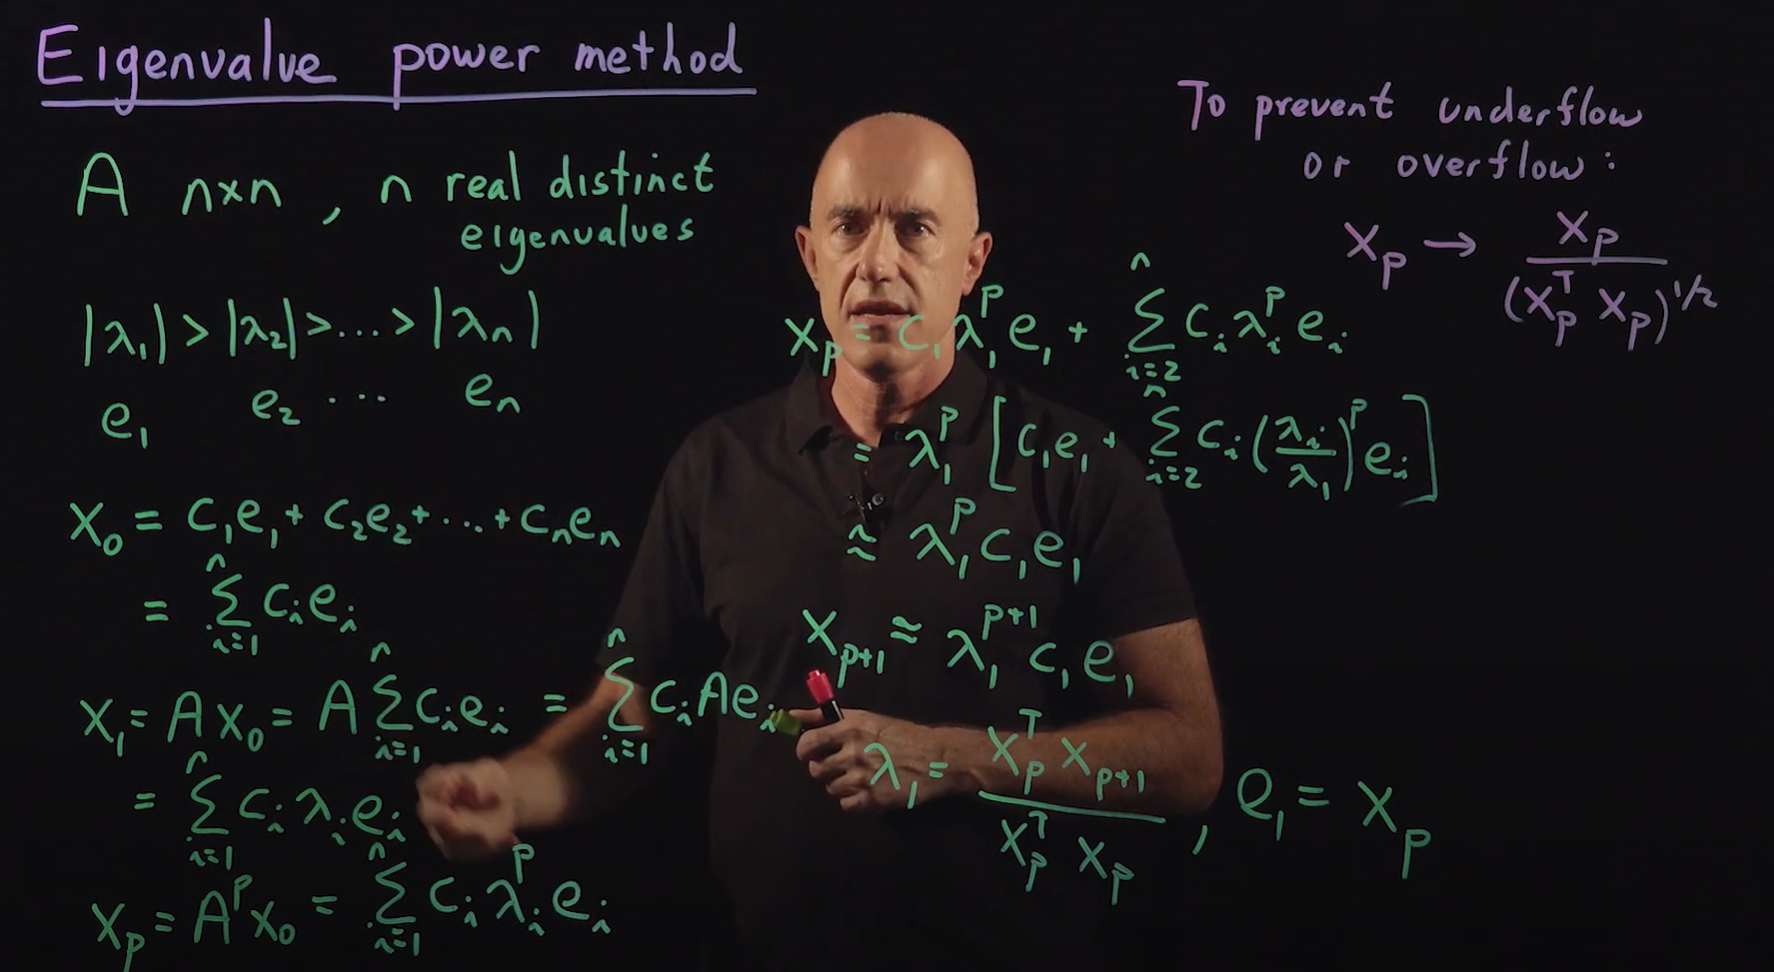 Eigenvalue power method
A n×n , n real distinct
eigenvalues
|λ₁| > |λ₂| > ... > |λₙ|
e₁ e₂ ... eₙ
x₀ = c₁e₁ + c₂e₂ + ... + cₙeₙ
= ∑ᵢ₌₁ⁿ cᵢeᵢ
x₁ = Ax₀ = A ∑ᵢ₌₁ⁿ cᵢeᵢ = ∑ᵢ₌₁ⁿ cᵢAeᵢ
= ∑ᵢ₌₁ⁿ cᵢλᵢeᵢ
xₚ = Aᵖx₀ = ∑ᵢ₌₁ⁿ cᵢλᵢᵖeᵢ
xₚ = c₁λ₁ᵖe₁ + ∑ᵢ₌₂ⁿ cᵢλᵢᵖeᵢ
= λ₁ᵖ [c₁e₁ + ∑ᵢ₌₂ⁿ cᵢ(λᵢ/λ₁)ᵖeᵢ]
≈ λ₁ᵖc₁e₁
xₚ₊₁ ≈ λ₁ᵖ⁺¹c₁e₁
λ₁ = xₚᵀxₚ₊₁ / xₚᵀxₚ , e₁ = xₚ
To prevent underflow
or overflow:
xₚ → xₚ / (xₚᵀxₚ)^1/2